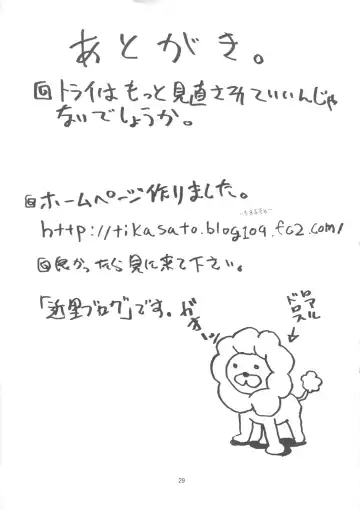 あとがき。
回トライはもっと見直されていいんじゃ
ないでしょうか。
回ホームページ作りました。
http://tikasato.blog109.fc2.com/
回良かったら見に来て下さい。
「近里ブログ」です。
ガオー
ロアル
ドロス
29